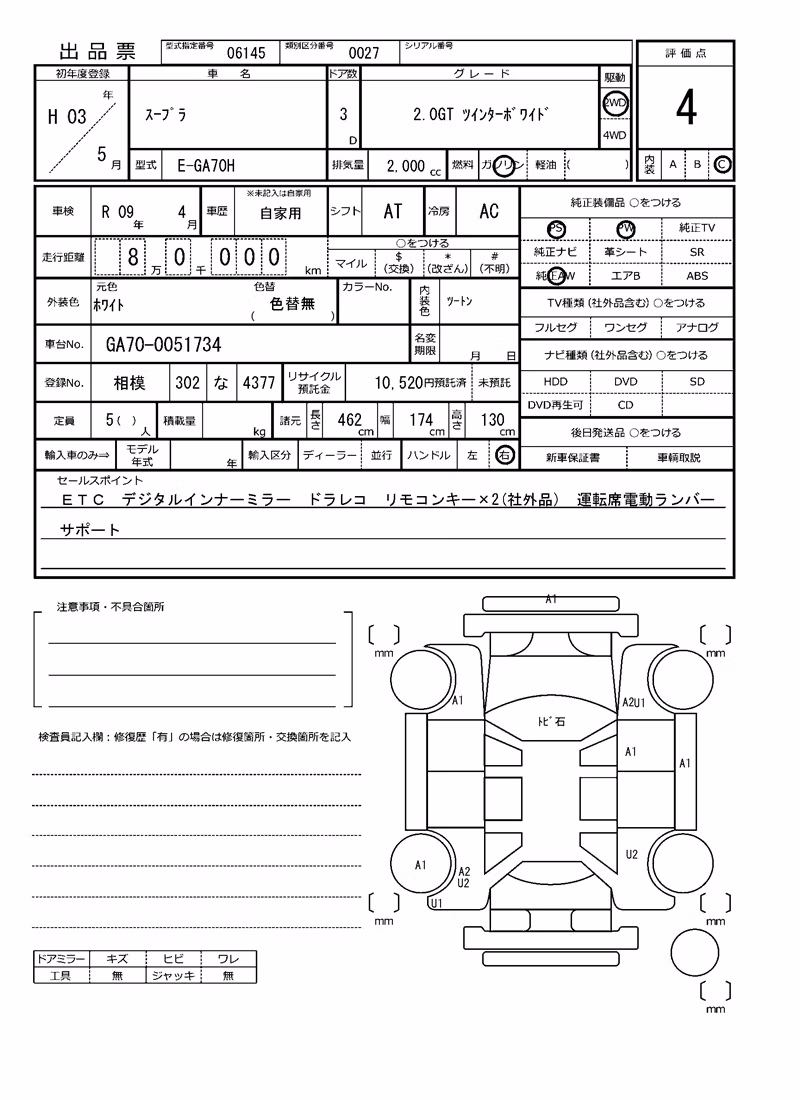 出品票 型式指定番号 06145 類別区分番号 0027 シリアル番号
評価点
4
内装 A B C
初年度登録 車名 ドア数 グレード 駆動
年
H 03 スープラ 3 2.0GT ツインターボワイド 2WD
D 4WD
5 月 型式 E-GA70H 排気量 2,000 cc 燃料 ガソリン 軽油 ( )
車検 R 09 年 4 月 車歴 ※未記入は自家用 自家用 シフト AT 冷房 AC
走行距離 8 万 0 千 0 0 0 km
○をつける
マイル $ (交換) * (改ざん) # (不明)
外装色 元色 ホワイト 色替 色替無 ( ) カラーNo. 内装色 ツートン
車台No. GA70-0051734 名変期限 月 日
登録No. 相模 302 な 4377 リサイクル預託金 10,520円預託済 未預託
定員 5( ) 人 積載量 kg 諸元 長さ 462 cm 幅 174 cm 高さ 130 cm
輸入車のみ⇒ モデル年式 年 輸入区分 ディーラー 並行 ハンドル 左 右
純正装備品 ○をつける
PS PW 純正TV
純正ナビ 革シート SR
純正AW エアB ABS
TV種類(社外品含む)○をつける
フルセグ ワンセグ アナログ
ナビ種類(社外品含む)○をつける
HDD DVD SD
DVD再生可 CD
後日発送品 ○をつける
新車保証書 車輌取説
セールスポイント
ETC デジタルインナーミラー ドラレコ リモコンキー×2(社外品) 運転席電動ランバー
サポート
注意事項・不具合箇所
検査員記入欄：修復歴「有」の場合は修復箇所・交換箇所を記入
ドアミラー キズ ヒビ ワレ
工具 無 ジャッキ 無
A1
mm mm
A1 A2U1
トビ石
A1 A1
A1 A2 U2
U2
U1
mm mm
mm